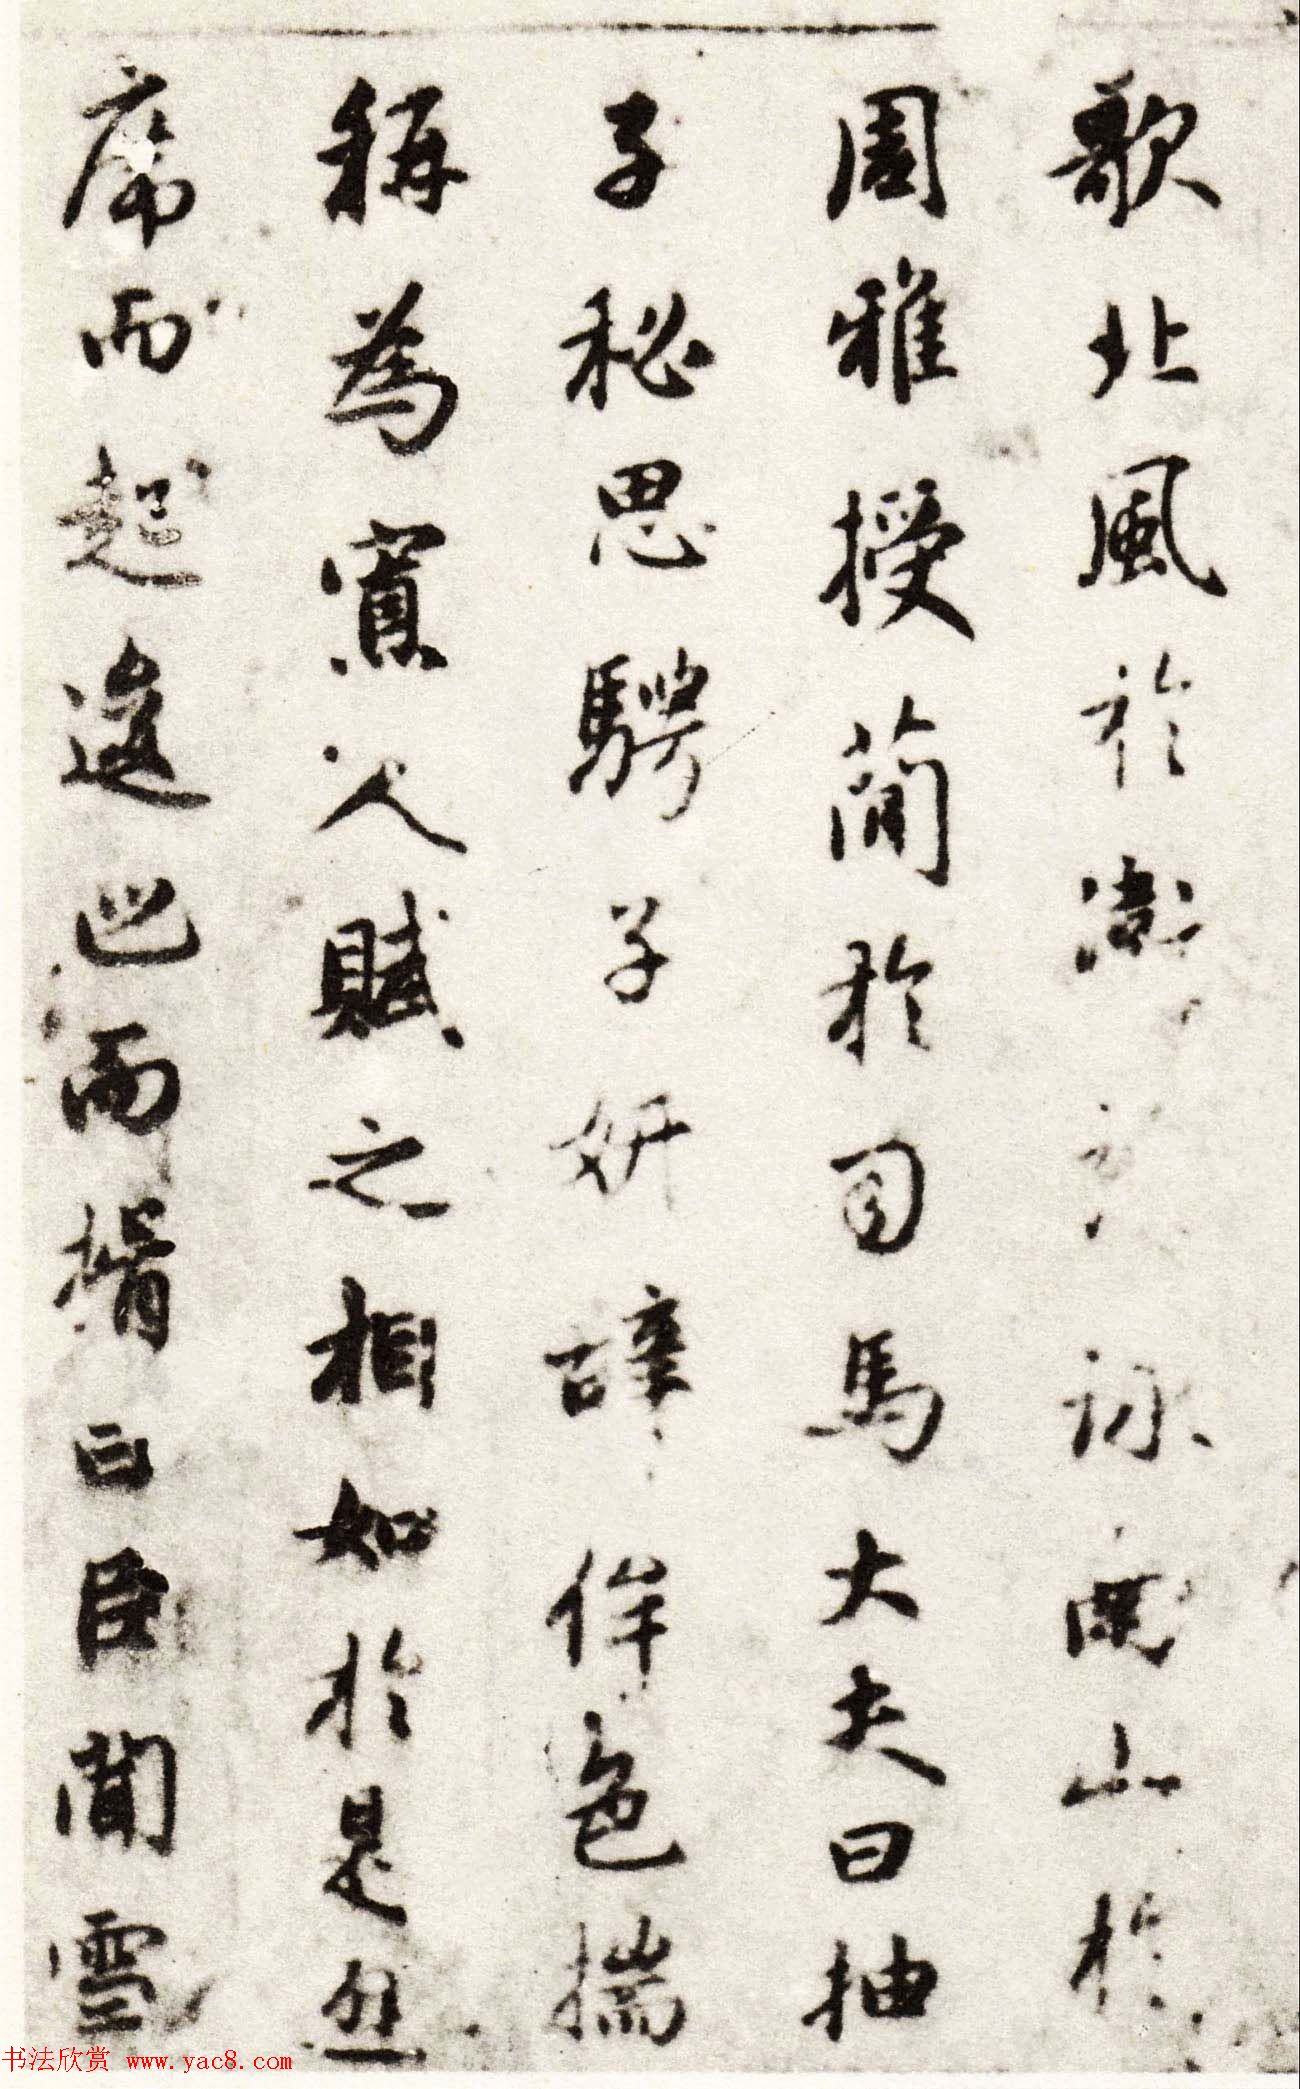 歌北風於衛詠南山於
周雅授簡於司馬大夫曰抽
子秘思騁子妍辭侔色揣
稱為寡人賦之相如於是
席而起逡巡而揖曰臣聞雪
书法欣赏 www.yac8.com